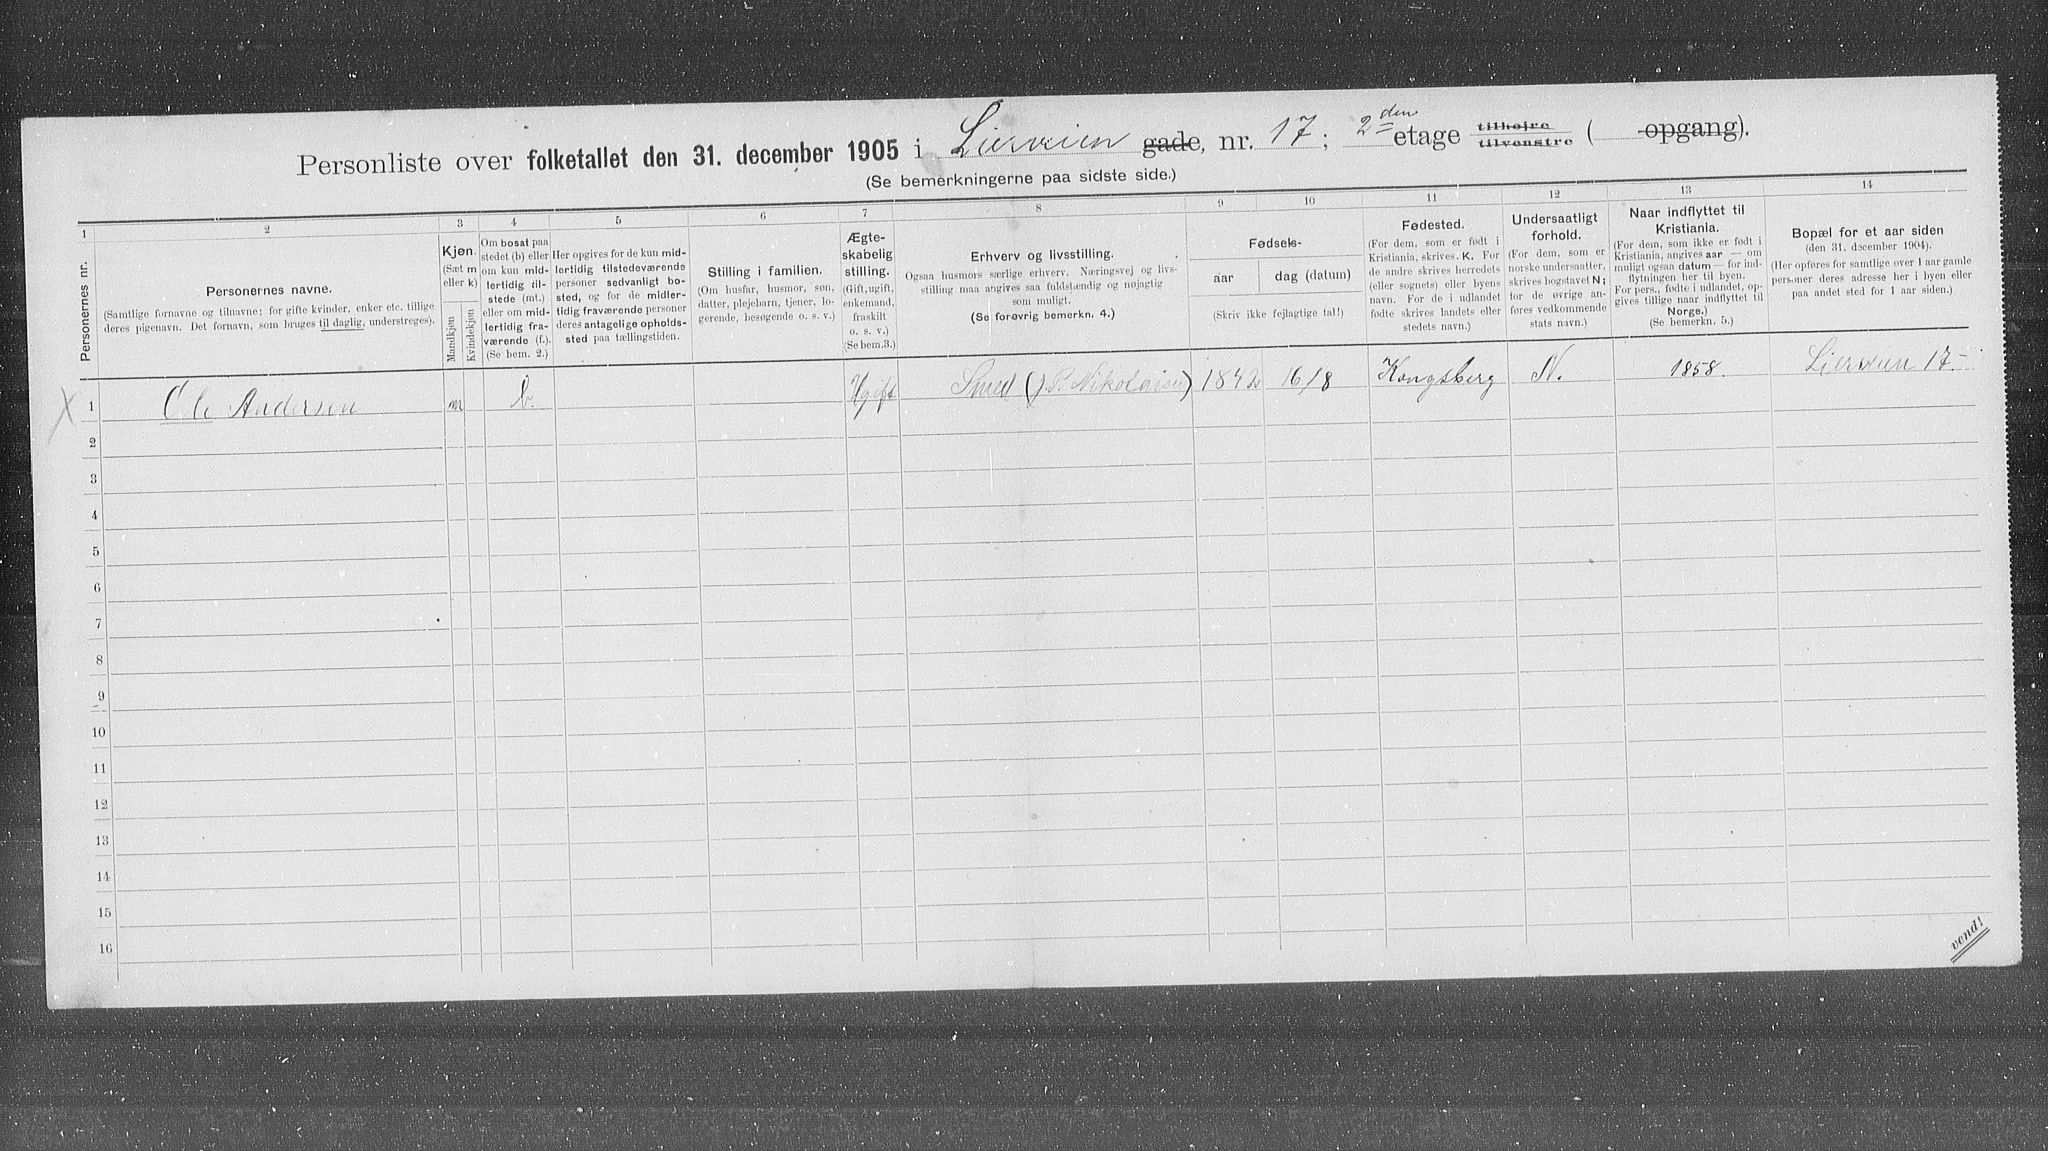 Personliste over folketallet den 31. december 1905 i Lierveien gade, nr. 17; 2den etage tilhøjre tilvenstre ( opgang).
(Se bemerkningerne paa sidste side.)
1 2 3 4 5 6 7 8 9 10 11 12 13 14
Personernes nr.
Personernes navne.
(Samtlige fornavne og tilnavne; for gifte kvinder, enker etc. tillige
deres pigenavn. Det fornavn, som bruges til daglig, understreges).
Kjøn.
(Sæt m
eller k)
Mandkjøn
Kvindekjøn
Om bosat paa
stedet (b) eller
om kun mid-
lertidig til-
stede (mt.)
eller om mid-
lertidig fra-
værende (f.).
(Se bem. 2.)
Her opgives for de kun mid-
lertidig tilstedeværende
personer sedvanligt bo-
sted, og for de midler-
tidig fraværende personer
deres antagelige opholds-
sted paa tællingstiden.
Stilling i familien.
(Om husfar, husmor, søn,
datter, plejebarn, tjener, lo-
gerende, besøgende o. s. v.)
Ægte-
skabelig
stilling.
(Gift, ugift,
enkemand,
fraskilt
o. s. v.)
(Se bem.3.)
Erhverv og livsstilling.
Ogsaa husmors særlige erhverv. Næringsvej og livs-
stilling maa angives saa fuldstændig og nøjagtig
som muligt.
(Se forøvrig bemerkn. 4.)
Fødsels-
aar
dag (datum)
(Skriv ikke fejlagtige tal!)
Fødested.
(For dem, som er født i
Kristiania, skrives K. For
de andre skrives herredets
(eller sognets) eller byens
navn. For de i udlandet
fødte skrives landets eller
stedets navn.)
Undersaatligt
forhold.
(For dem, som er
norske undersaatter,
skrives bogstavet N;
for de øvrige an-
føres vedkommende
stats navn.)
Naar indflyttet til
Kristiania.
(For dem, som ikke er født i
Kristiania, angives aar — om
muligt ogsaa datum — for ind-
flytningen her til byen.
For pers., fødte i udlandet, op-
gives tillige naar indflyttet til
Norge.)
(Se bemerkn. 5.)
Bopæl for et aar siden
(den 31. december 1904).
(Her opføres for samtlige over 1 aar gamle
personer deres adresse her i byen eller
paa andet sted for 1 aar siden.)
X 1 Ole Andersen m b. Ugift Smed (J. P. Nikolaisen) 1842 16/8 Kongsberg N. 1858. Lierveien 17-
2
3
4
5
6
7
8
9
10
11
12
13
14
15
16
vend!